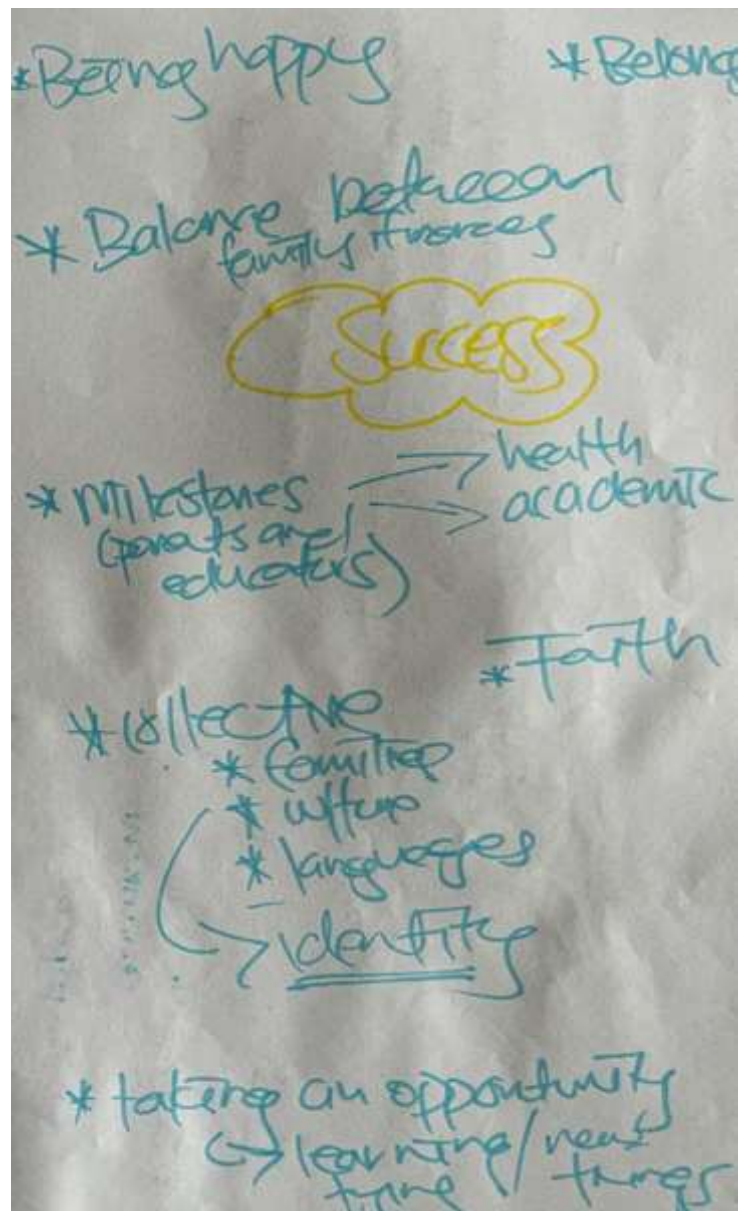 * Being happy
* Belong
* Balance between
family finances
Success
* Milestones → health
→ academic
(parents and
educators)
* Faith
* collective
* families
* culture
* languages
→ identity
* taking an opportunity
↳ learning / new
trying / things